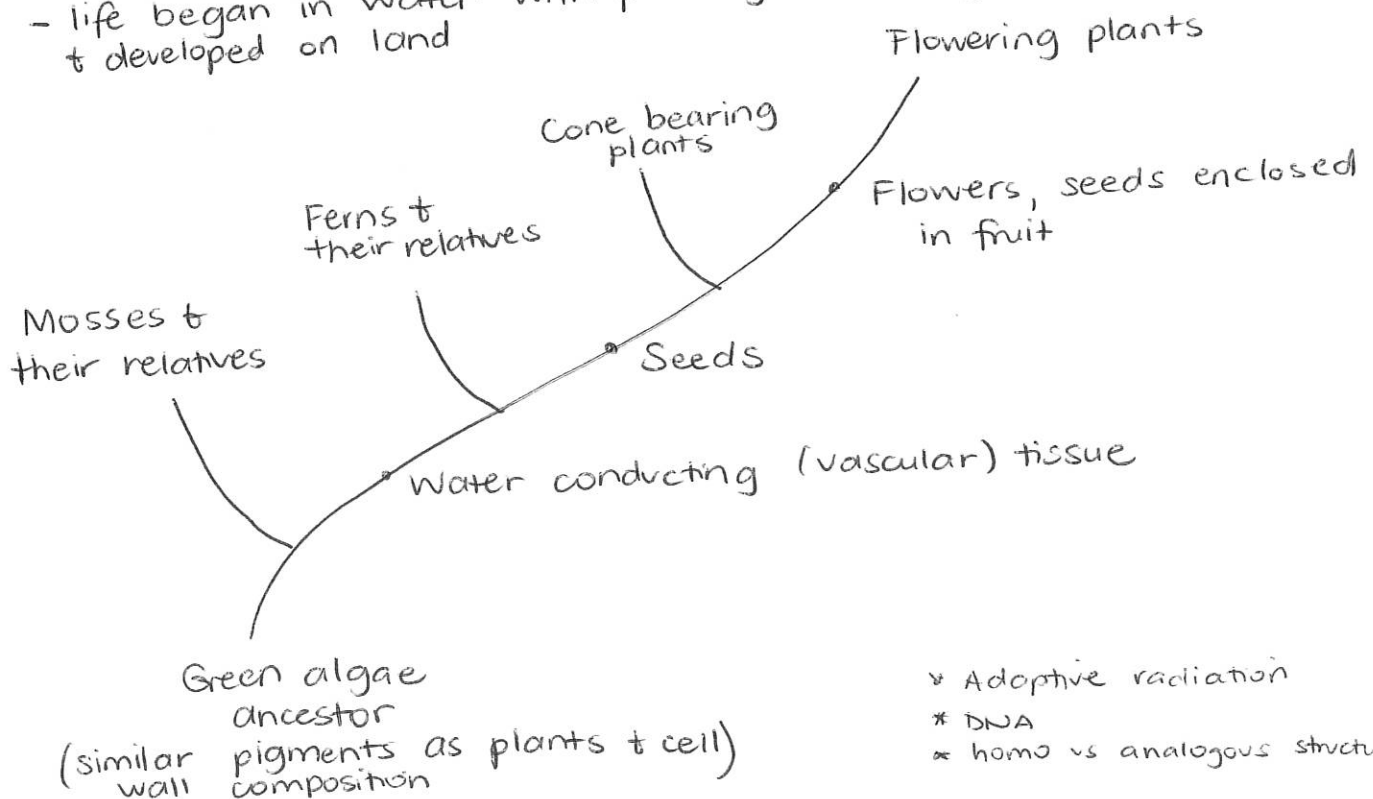 - life began in water
& developed on land
Flowering plants
Cone bearing
plants
Flowers, seeds enclosed
in fruit
Ferns &
their relatives
Mosses &
their relatives
Seeds
Water conducting (vascular) tissue
Green algae
ancestor
(similar pigments as plants & cell)
wall composition
* Adaptive radiation
* DNA
* homo vs analogous